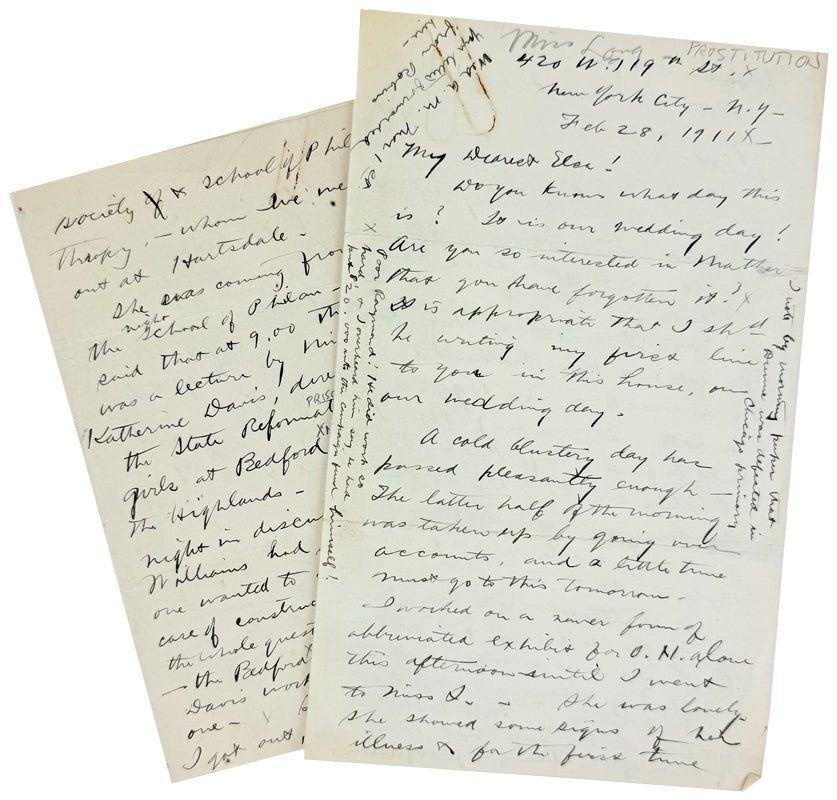 Miss Long
PROSTITUTION
420 W. 119th St. x
New York City - N.Y-
Feb 28, 1911 x
My Dearest Else!
Do you know what day this
is? It is our wedding day!
Are you so interested in
that you have forgotten it? x
It is appropriate that I sh'd
be writing my first line
to you in this house, on
our wedding day.
A cold blustery day has
passed pleasantly enough -
The latter half of the morning
was taken up by going over
accounts, and a little time
must go to this tomorrow -
I worked on a newer form of
abbreviated exhibit for O. H. alone
this afternoon until I went
to Miss L. - She was lovely -
She showed some signs of her
illness & for the first time
I note by morning paper that
Dunne was defeated in
Chicago primary
Poor Raymond! He did work so
hard & I overheard him say he had
put $20,000 into the campaign fund himself!
society & School of Phil
thropy, - whom we
out at Hartsdale -
She was coming from
the night School of Philan-
said that at 9.00
was a lecture by
Katherine Davis,
the State Reformat
PRIS
girls at Bedford
the Highlands -
night in discu
Williams had
one wanted to
case of construc
the whole quest
- the Bedford
Davis work
one - x
I got out